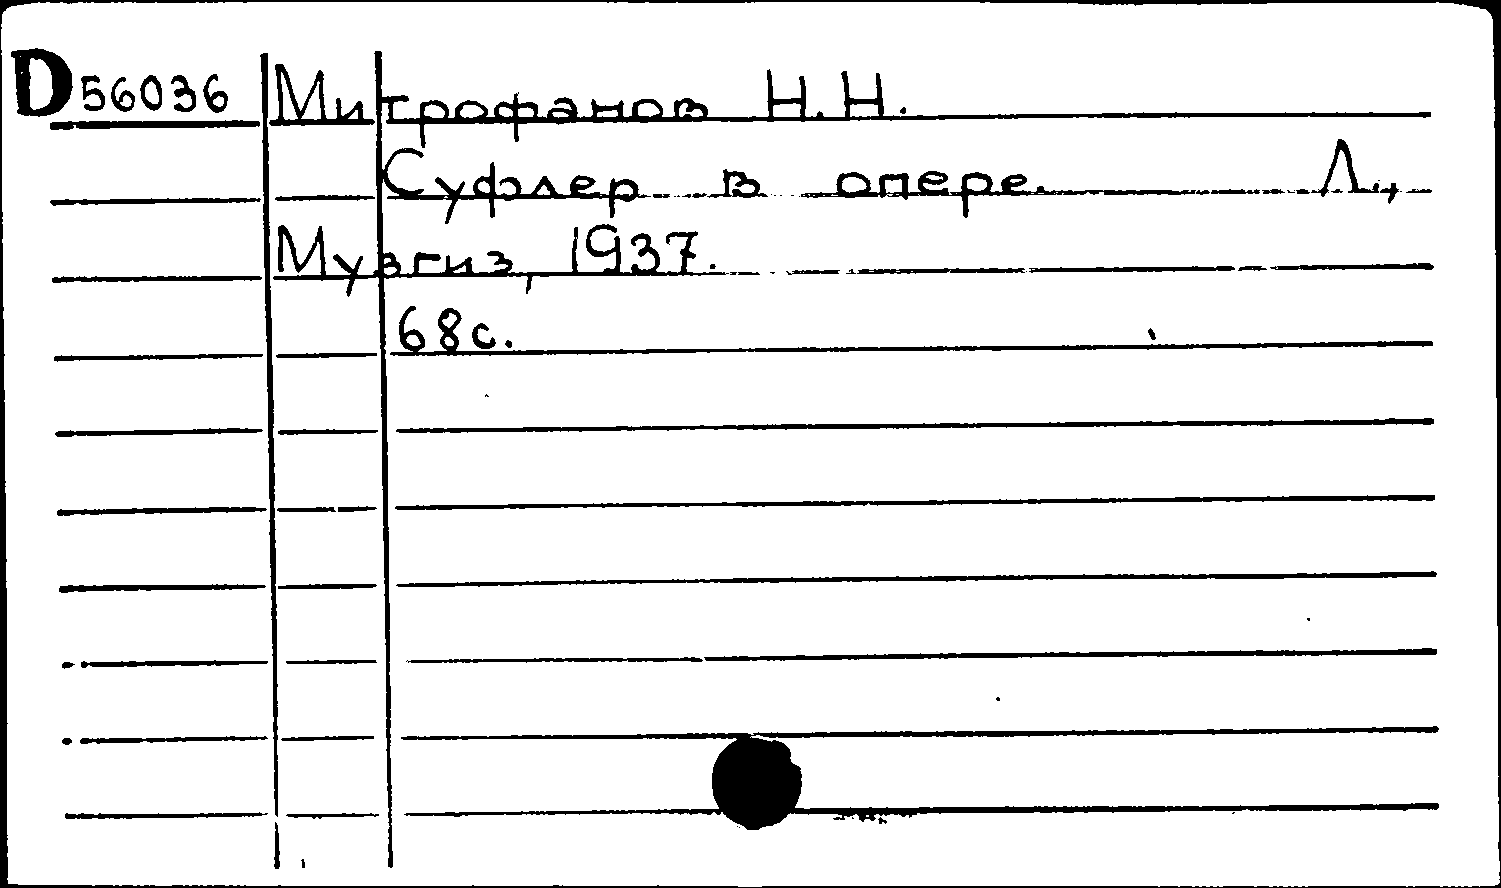 D56036 Митрофанов Н.Н.
Суфлер в опере. Л.,
Музгиз, 1937.
68с.